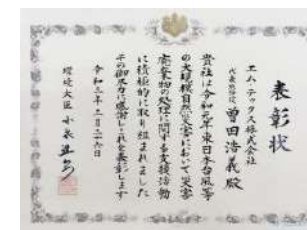 表彰状
エム・テックス株式会社
代表取締役 曽田浩義殿
貴社は令和元年東日本台風等
の大規模自然災害において災害
廃棄物の処理に関する支援活動
に積極的に取り組まれました
その御尽力に感謝しこれを表彰します
令和三年三月二十六日
環境大臣 小泉進次郎